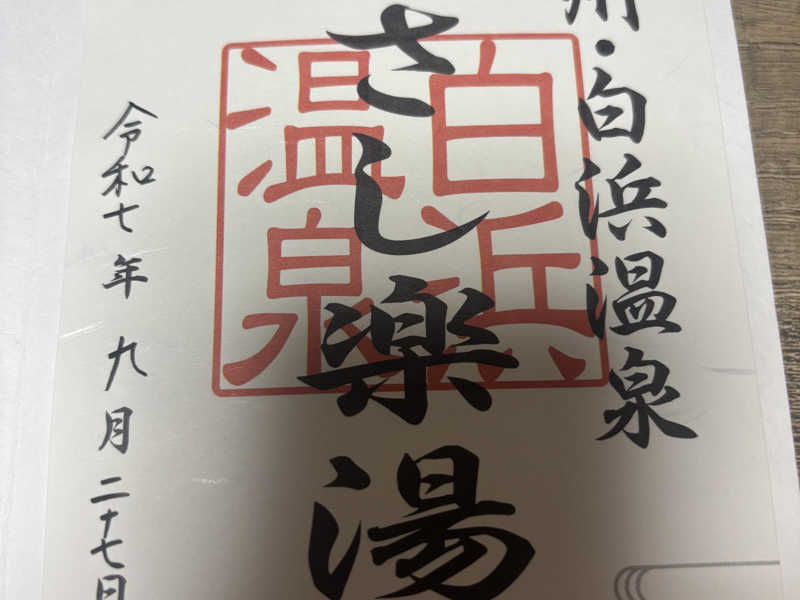 州・白浜温泉
さし楽湯
白浜温泉
令和七年九月二十七日